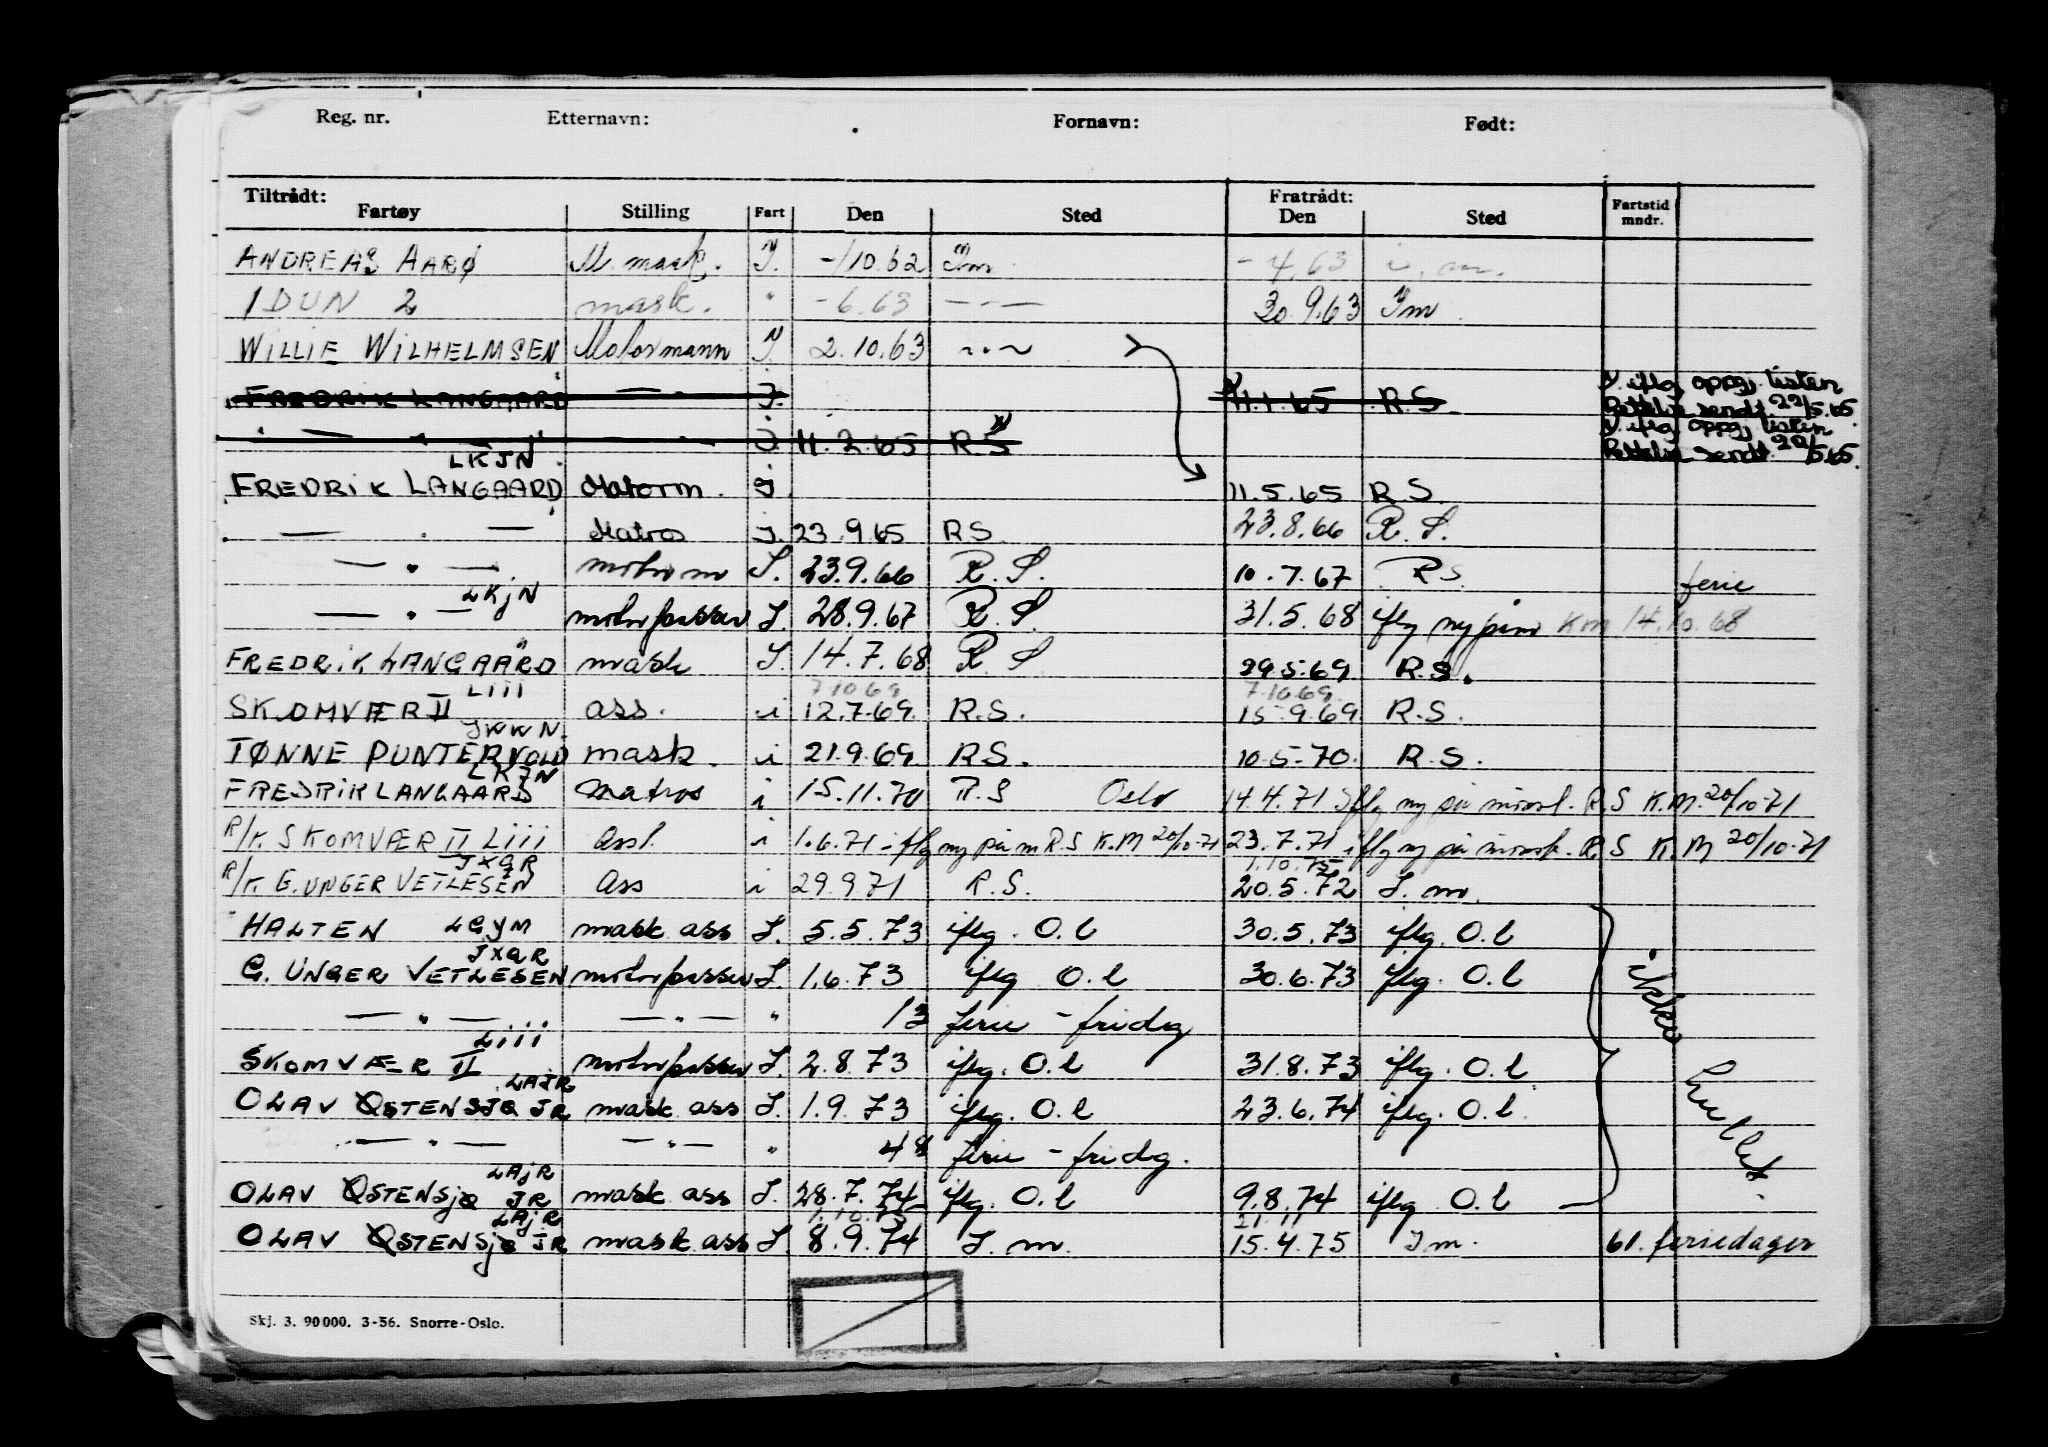 Reg. nr. Etternavn: Fornavn: Født:
Tiltrådt: Fratrådt:
Fartøy Stilling Fart Den Sted Den Sted Fartstid mndr.
ANDREAS AARØ M. mask. I. -/10.62 Im -4.63 i. m.
IDUN 2 mask. " -6.63 — " — 30.9.63 Im
WILLIE WILHELMSEN Motormann I. 2.10.63 — " —
FREDRIK LANGAARD — " — I. 11.1.65 R.S. iflg oppg, listen
Rettelse sendt 22/5.65
— " — — " — I. 11.2.65 R.S iflg oppg, listen
Rettelse sendt 22/5.65.
LKJN
FREDRIK LANGAARD Motorm. I. 11.5.65 R.S.
— " — Matros I. 23.9.65 R.S. 23.8.66 R.S.
— " — motorm I. 23.9.66 R.S. 10.7.67 R.S. ferie
LKJN
— " — motorpasser I. 28.9.67 R.S. 31.5.68 iflg ny påm KM 14.10.68
FREDRIK LANGAARD mask I. 14.7.68 R.S 29.5.69 R.S.
Liii 7.10.69 7.10.69.
SKOMVÆR II ass. i 12.7.69. R.S. 15.9.69 R.S.
JWWN.
TØNNE PUNTERVOLD mask. i 21.9.69 R.S. 10.5.70. R.S.
LKJN
FREDRIK LANGAARD Matros i 15.11.70 R.S Oslo 14.4.71 Iflg ny på mønst. R.S K.M. 20/10-71
R/K. SKOMVÆR II Liii Ass. i 1.6.71 - iflg ny på m R.S K.M 20/10-71 23.7.71 iflg ny på mønst. R.S K.M 20/10-71
JXQR 1.10.75
R/K. G. UNGER VETLESEN Ass i 29.9.71 R.S. 20.5.72 I. m.
HALTEN LGYM mask ass I. 5.5.73 iflg. O.l 30.5.73 iflg. O.l
JXQR
G. UNGER VETLESEN motorpasser I. 1.6.73 iflg O.l 30.6.73 iflg. O.l ikke
— " — — " — " 13 ferie - fridag
Liii
SKOMVÆR II motorpasser I. 2.8.73 iflg. O.l 31.8.73 iflg. O.l
LAJR
OLAV ØSTENSJØ JR mask ass I. 1.9.73 iflg. O.l 23.6.74 iflg. O.l
— " — — " — " 48 ferie - fridag.
LAJR
OLAV ØSTENSJØ JR mask ass I. 28.7.74 iflg. O.l 9.8.74 iflg O.l
LAJR 21.11
OLAV ØSTENSJØ JR mask ass I. 8.9.74 I. m. 15.4.75 I m. 61. feriedager
Skj. 3. 90000. 3-56. Snorre-Oslo.